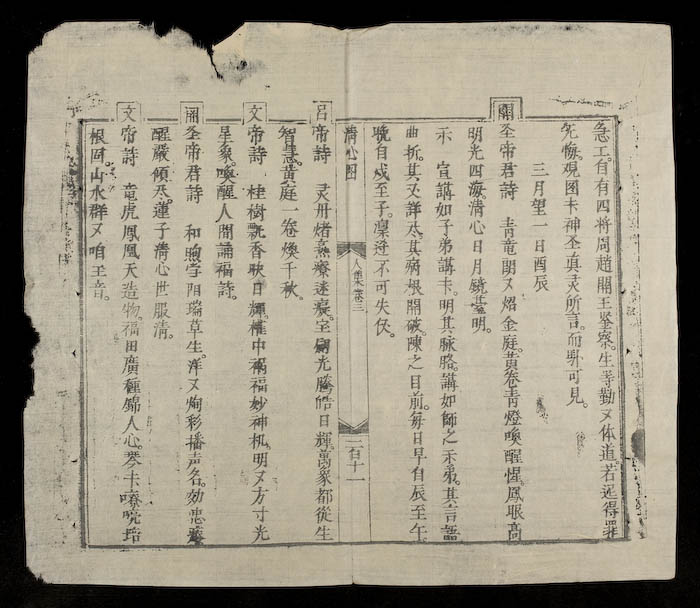 急工。自有四将周趙関王鉴察。生等勸又体道。若迟得罪
悔。观图卡神圣真灵所言。而卽可見。
三月望一日酉辰
關圣帝君詩　青竜朗又焰金庭。黃卷青燈喚醒惺。鳳眼高
明光四海。清心日月鏡臺明。
示　宣講如子弟講卡。明其脉胳。講如師之示弟。其言
曲折。其又詳尽。其病根開破。陳之目前。每日早自辰至午
晚自戍至子。凛遵不可失仅。
清心图　人集卷三　二百十一
呂帝詩　灵丹熬療迷癡。宝光騰皓日輝。萬象都從生
智慧。黃庭一卷煥千秋。
文帝詩　桂樹飘香映日輝。權中禍福妙神机。明又方寸光
星象。喚醒人間誦福詩。
関圣帝君詩　和煦字阳瑞草生。洋又炯彩播声名。効忠
醒嚴傾尽。蓮子清心世服清。
文帝詩　竜虎鳳凰天造物。福田廣種錦人心。琴卡嘹喨
根同。山水群又咱王音。